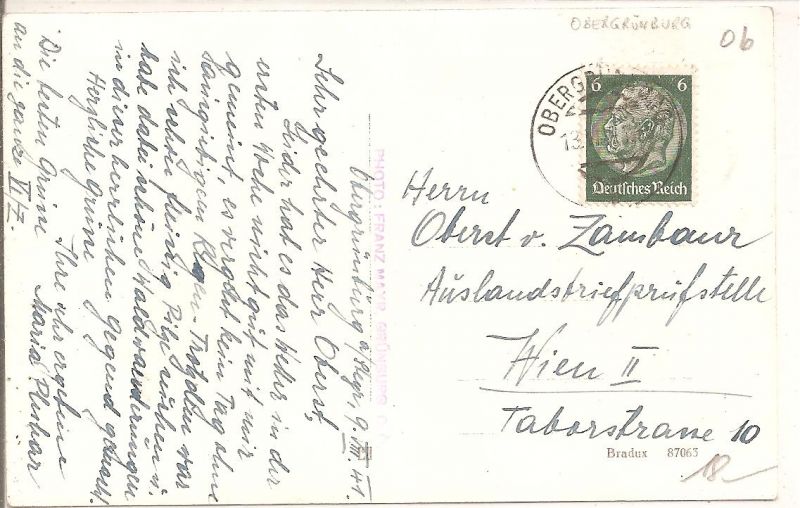 OBERGRÜNBURG
06
Obergrünburg a/Steyr, 9. VIII. 41.
Sehr geehrter Herr Oberst,
Leider hat es das Wetter in der
ersten Woche nicht gut mit mir
gemeint, es verging kein Tag ohne
ausgiebigen Regen. Trotzdem war
ich schon fleissig Pilze suchen u.
habe dabei schöne Waldwanderungen
in dieser herrlichen Gegend gemacht.
Herzliche Grüsse
Ihre sehr ergebene
Maria
Die besten Grüsse
an die ganze VI/Z.
PHOTO: FRANZ MAYR, GRÜNBURG
OBERGRÜNBURG
13.
6 6
Deutsches Reich
Herrn
Oberst v. Zambaur
Auslandsbriefprüfstelle
Wien II
Taborstrasse 10
Bradux 87063
18-